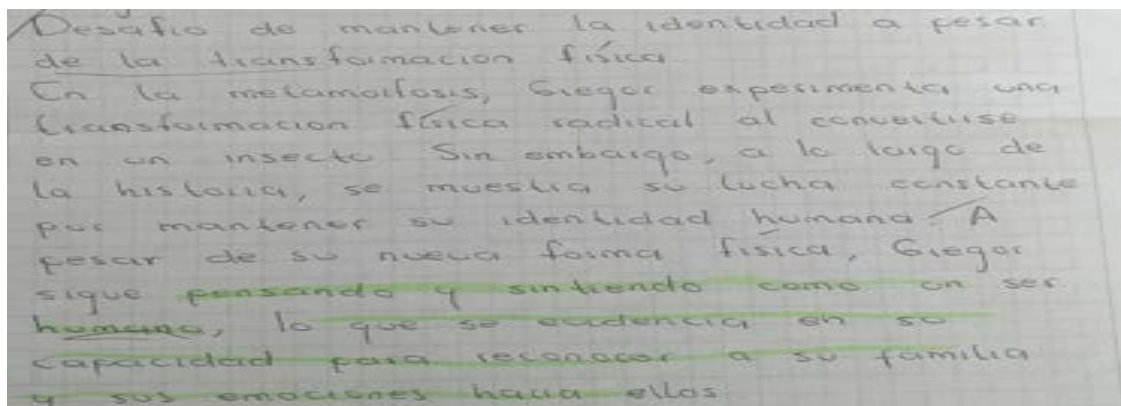 Desafio de mantener la identidad a pesar
de la transformacion física
En la metamorfosis, Gregor experimenta una
transformacion física radical al convertirse
en un insecto Sin embargo, a lo largo de
la historia, se muestra su lucha constante
por mantener su identidad humana. A
pesar de su nueva forma física, Gregor
sigue pensando y sintiendo como un ser
humano, lo que se evidencia en su
capacidad para reconocer a su familia
y sus emociones hacia ellos